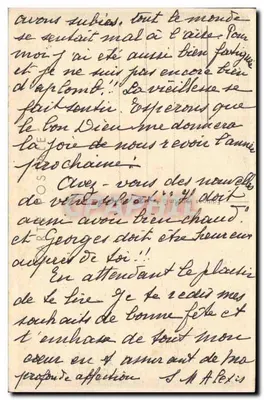 avons subies, tout le monde
se sentait mal à l'aise. Pour
moi j'ai été aussi bien fatiguée
et je ne suis pas encore bien
d'aplomb!! La vieillesse se
fait sentir. Espérons que
le bon Dieu me donnera
la joie de nous revoir l'année
prochaine!
Avez-vous des nouvelles
de doit
aussi avoir bien chaud
et Georges doit être heureux
auprès de toi!!
En attendant le plaisir
de te lire Je te redis mes
souhaits de bonne fête et
t'embrasse de tout mon
cœur en t'assurant de ma
profonde affection S M Alexis